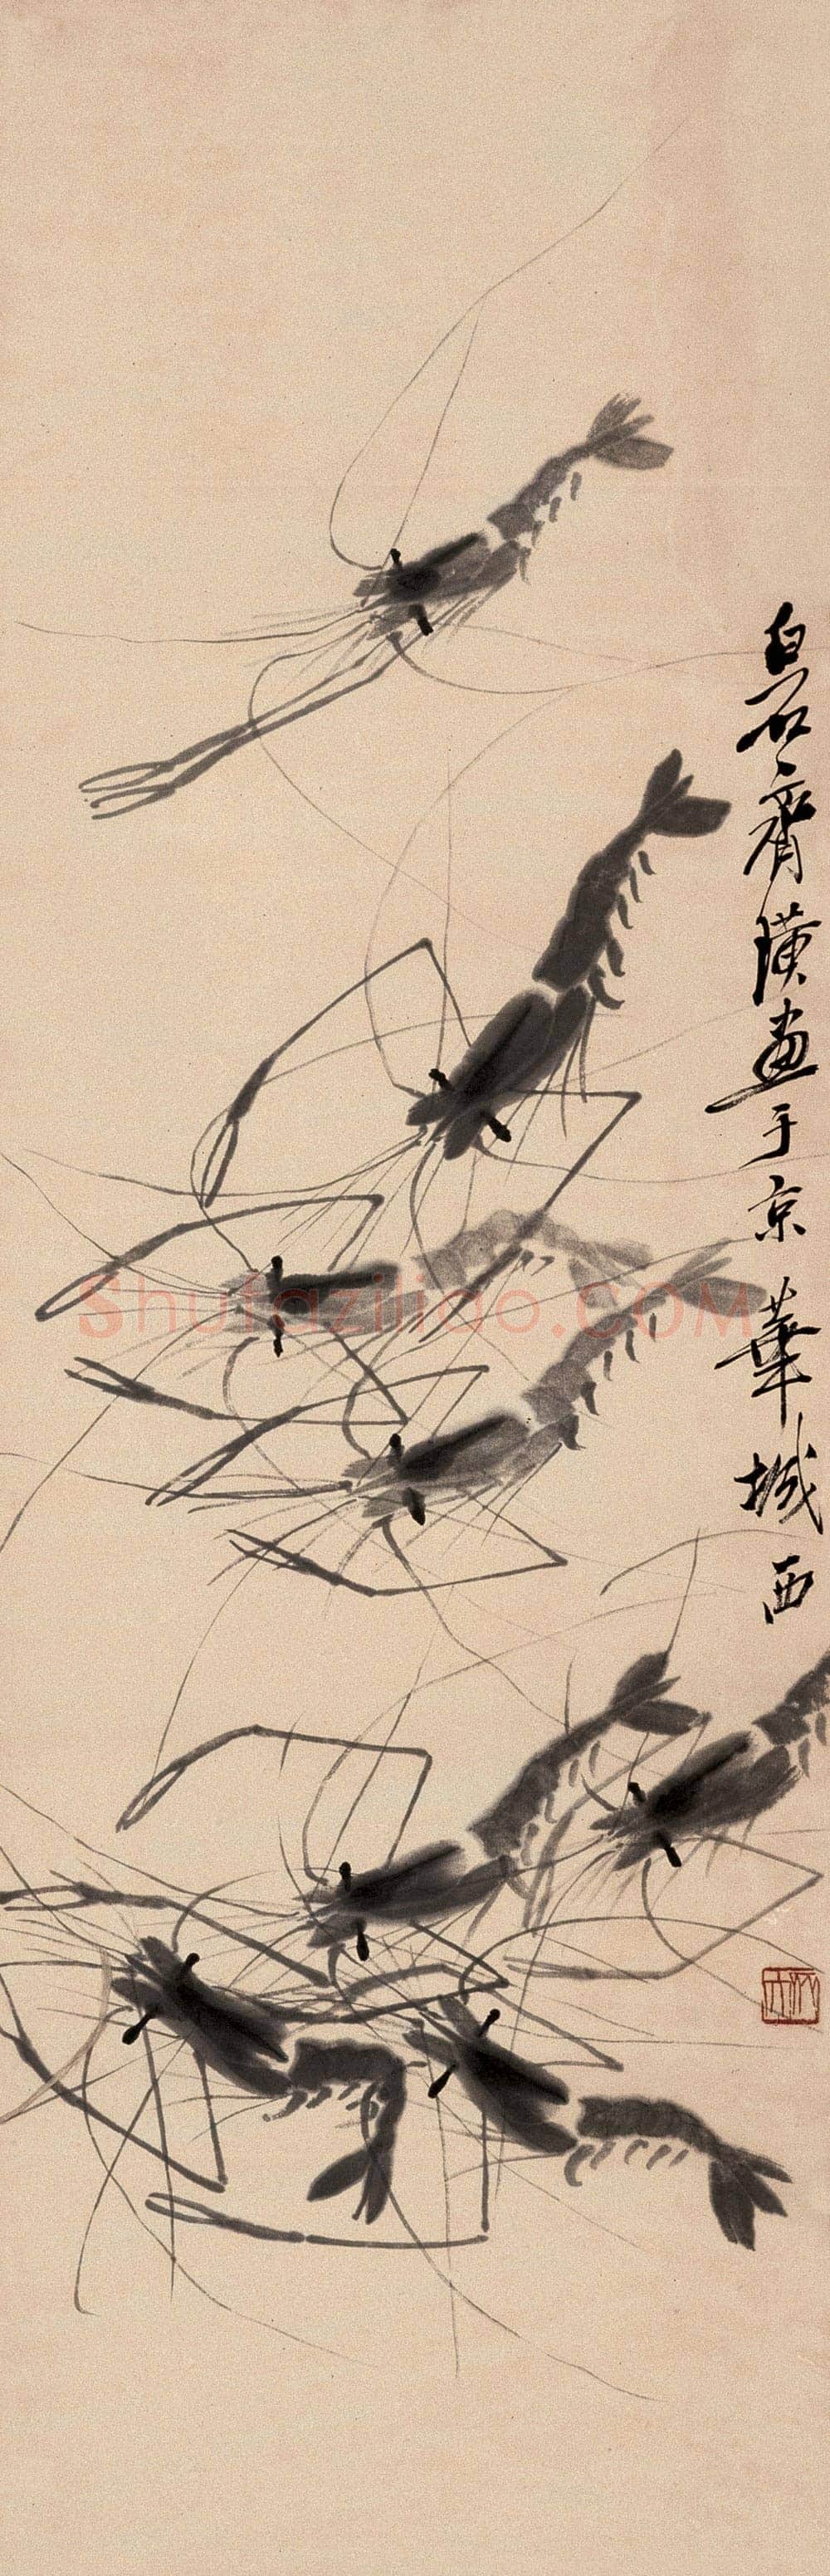 白石齊璜畫于京華城西
Shufaziliao.COM
木人